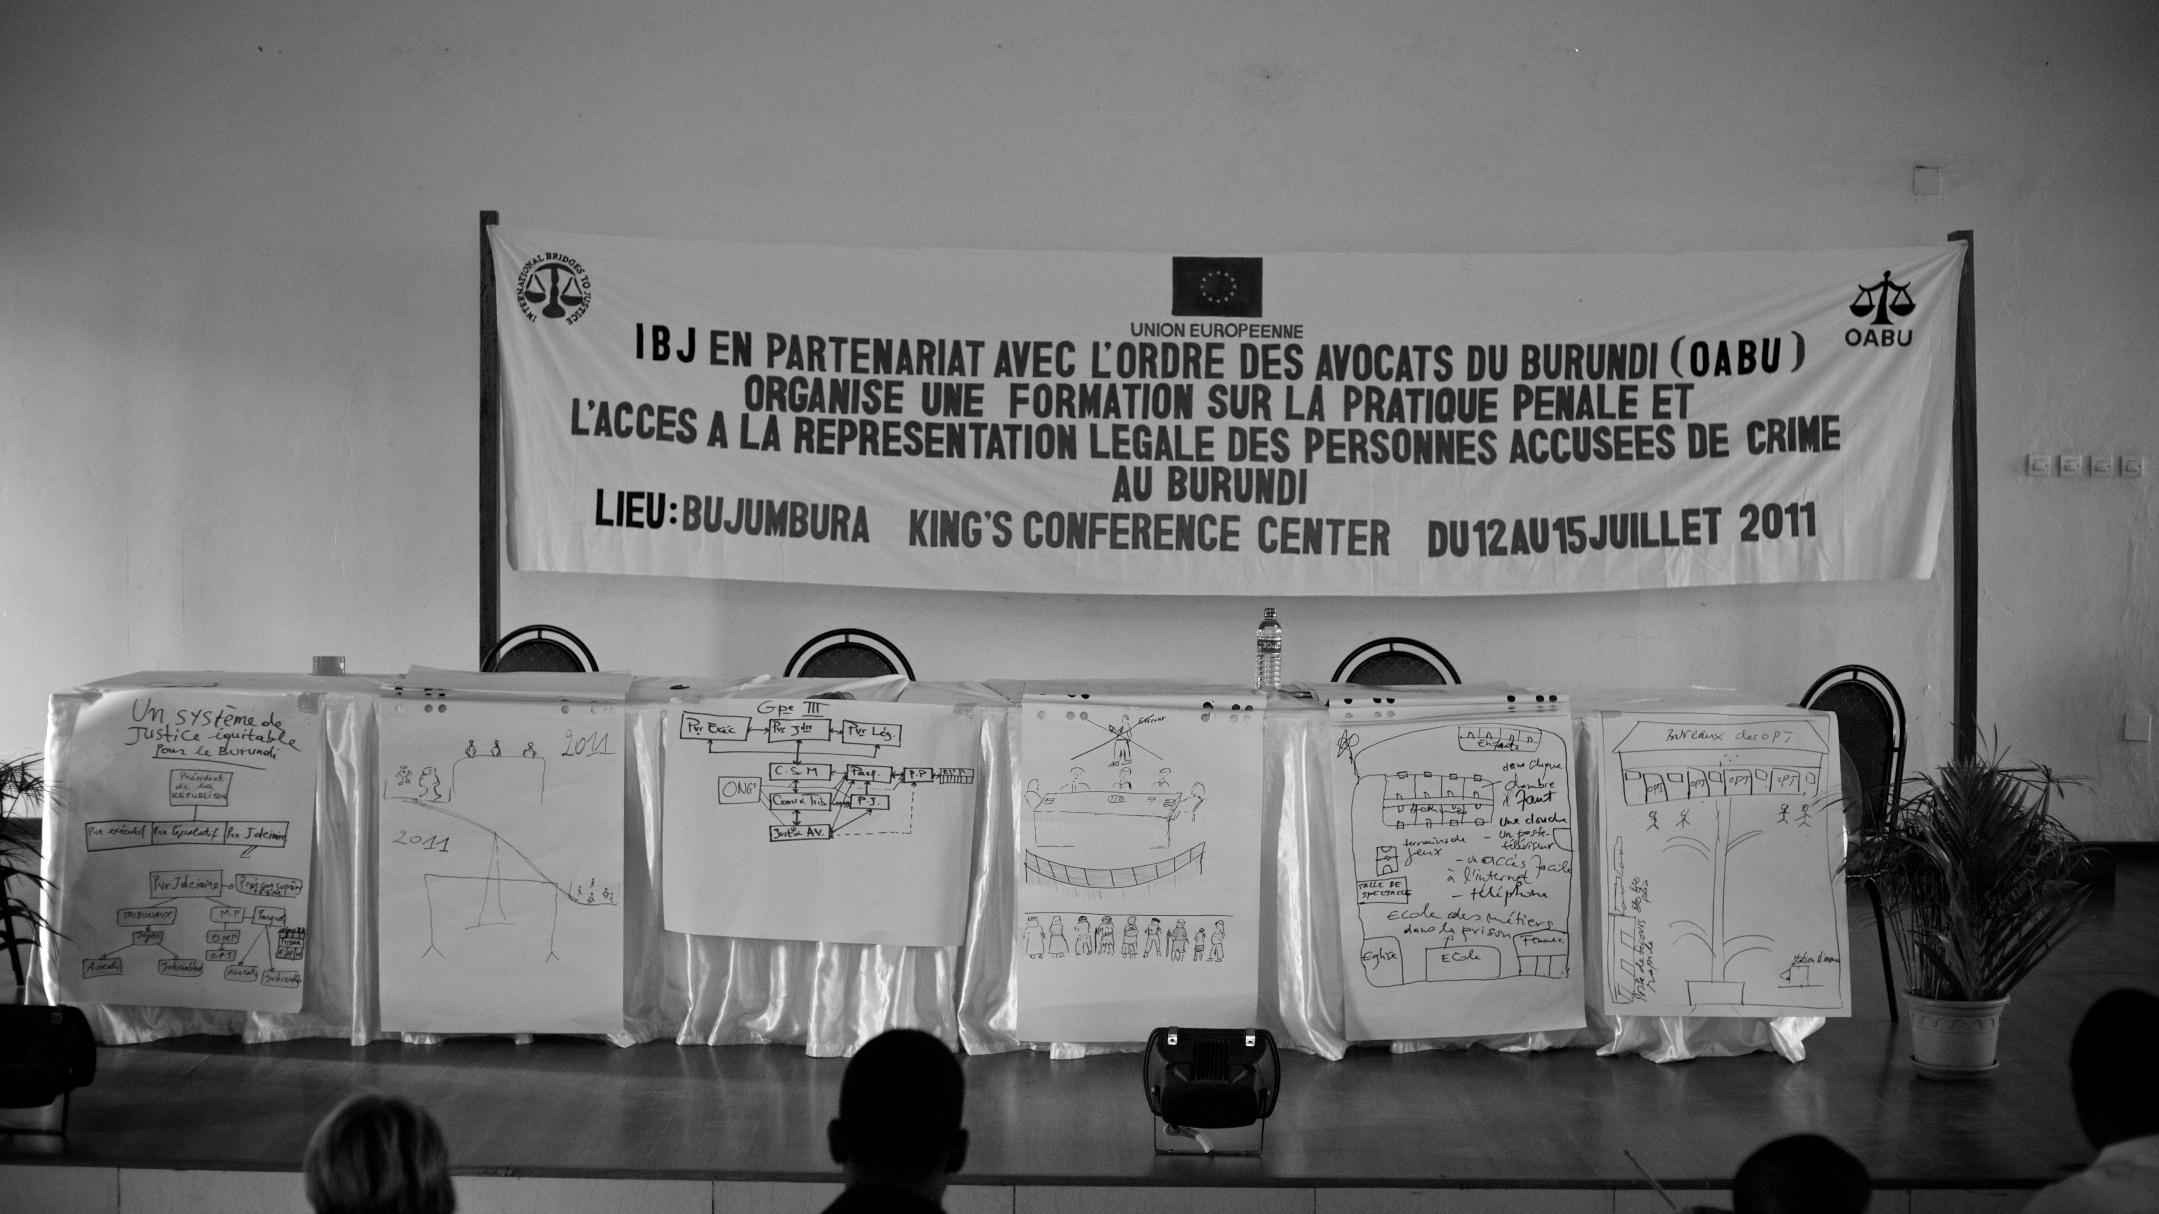 INTERNATIONAL BRIDGES TO JUSTICE
UNION EUROPEENNE
OABU
IBJ EN PARTENARIAT AVEC L'ORDRE DES AVOCATS DU BURUNDI (OABU)
ORGANISE UNE FORMATION SUR LA PRATIQUE PENALE ET
L'ACCES A LA REPRESENTATION LEGALE DES PERSONNES ACCUSEES DE CRIME
AU BURUNDI
LIEU: BUJUMBURA KING'S CONFERENCE CENTER DU 12 AU 15 JUILLET 2011
Un système de
Justice équitable
Pour le Burundi
Président
de la
REPUBLIQUE
Pvr exécutif Pvr Législatif Pvr Jdciaire
Pvr Jdciaire
TRIBUNAUX M.P Parquet
Juges O.M.P
O.P.J
Avocats Justiciables Avocats Justiciables
2011
2011
Gpe III
Pvr Exéc Pvr Jdre Pvr Lég.
C.S.M Parq. P.P
ONGs Coaux Trib P.J.
AV.
Enfants
dans chaque
chambre
il faut
une douche
- un poste
téléviseur
terrains de
jeux
- un accès facile
à l'internet
- téléphone
SALLE DE
SPECTACLE
Ecole des métiers
dans la prison
Femmes
Eglise
Ecole
Bureaux des OPJ
OPJ OPJ OPJ OPJ